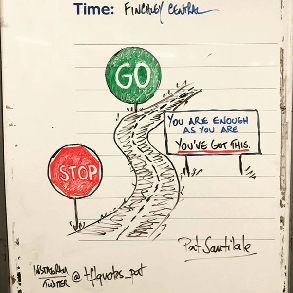 Time: FINCHLEY CENTRAL
GO
YOU ARE ENOUGH
AS YOU ARE
YOU'VE GOT THIS.
STOP
INSTAGRAM
TWITTER @ tflquotes_pat